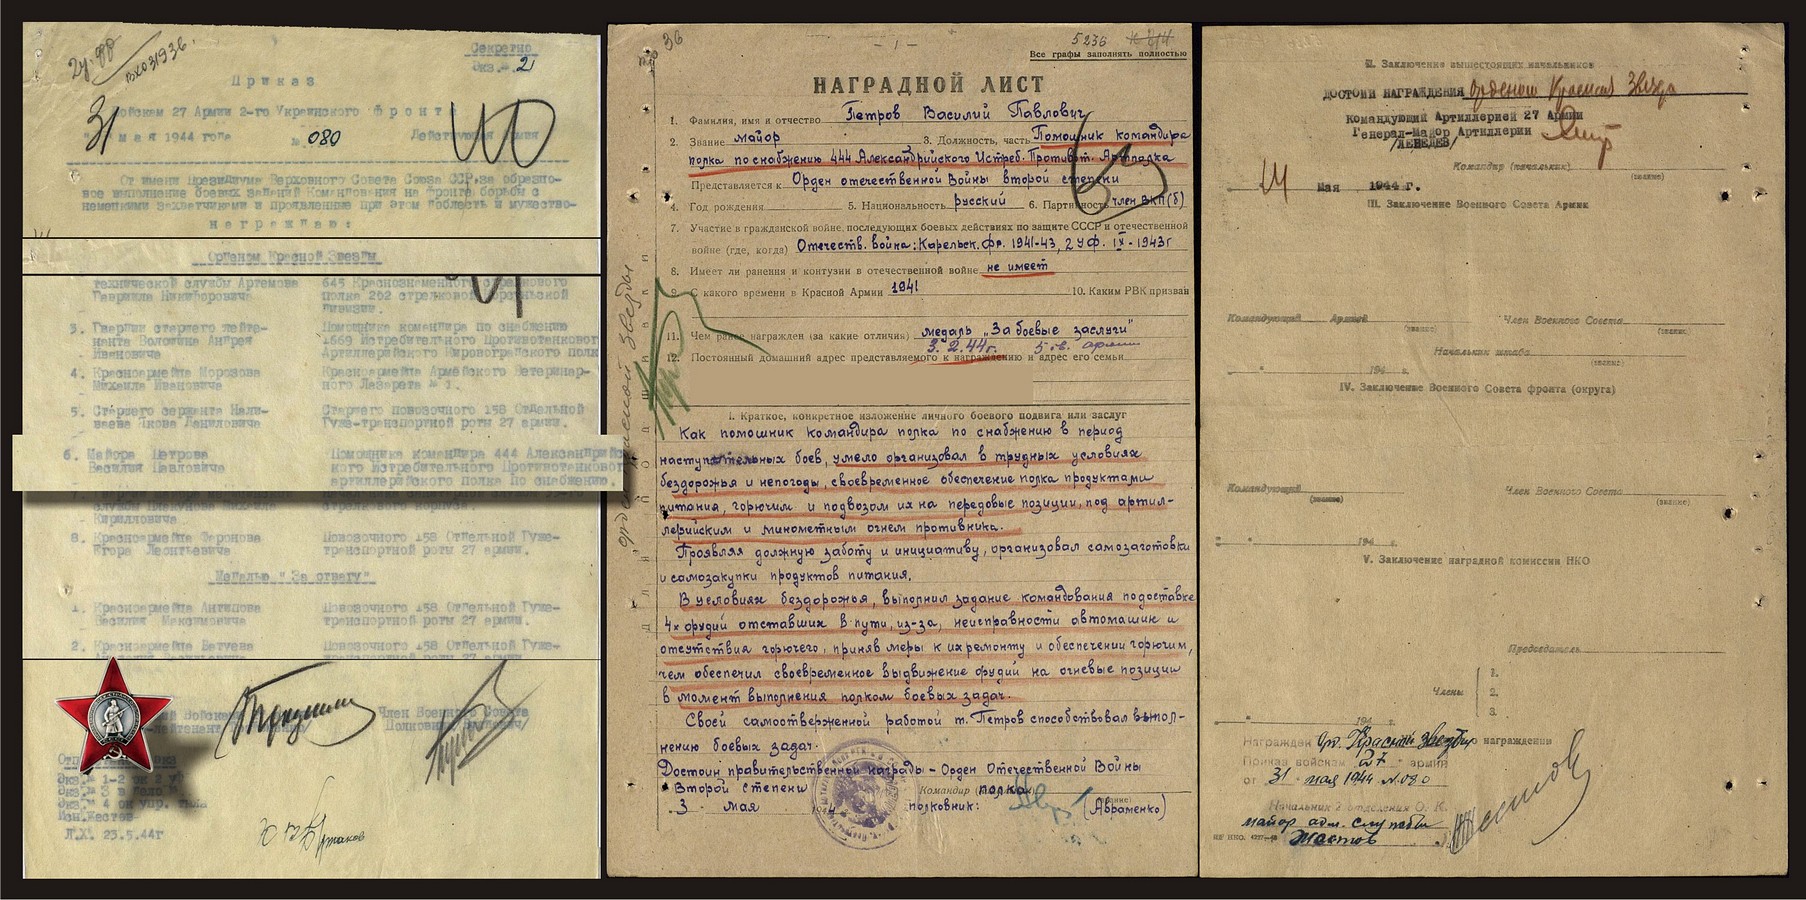 2у. фр
вх031936.
Секретно
Экз. 2
Приказ
Войскам 27 Армии 2-го Украинского Фронта
31 мая 1944 года № 080 Действующая армия
От имени Президиума Верховного Совета Союза ССР за образцо-
вое выполнение боевых заданий Командования на фронте борьбы с
немецкими захватчиками и проявленные при этом доблесть и мужество-
награждаю:
Орденом Красной Звезды
технической службы Артемова 645 Краснознаменного стрелкового
Гавриила Никифоровича полка 202 стрелковой
дивизии.
3. Гвардии старшего лейте- Помощника командира по снабжению
нанта Волошина Андрея 1669 Истребительного Противотанкового
Ивановича Артиллерийского Кировоградского полка
4. Красноармейца Морозова Красноармейца Армейского Ветеринар-
Михаила Ивановича ного Лазарета № 1.
5. Старшего сержанта Нали- Старшего повозочного 158 Отдельной
ваева Якова Даниловича Гуже-транспортной роты 27 армии.
6. Майора Петрова Помощника командира 444 Александрийс
Василия Павловича кого Истребительного Противотанкового
артиллерийского полка по снабжению.
службы Михаила стрелкового корпуса.
Кирилловича
8. Красноармейца Повозочного 158 Отдельной Гуже-
Егора Леонтьевича транспортной роты 27 армии.
Медалью "За отвагу"
1. Красноармейца Антипова Повозочного 158 Отдельной Гуже-
Василия Максимовича транспортной роты 27 армии.
2. Красноармейца Повозочного 158 Отдельной Гуже-
транспортной роты 27 армии
Войсками Член Военного Совета
-лейтенант Полковник
Экз.№ 1-2
Экз.№ 3 в дело
Экз.№ 4 ок упр. тыла
Исп.Жестов
Л.Х. 23.5.44г
36
- 1 -
5236
Все графы заполнять полностью
НАГРАДНОЙ ЛИСТ
1. Фамилия, имя и отчество Петров Василий Павлович
2. Звание майор 3. Должность, часть Помошник командира
полка по снабжению 444 Александрийского Истреб. Противот. Артполка
Представляется к Орден отечественной Войны второй степени
4. Год рождения 5. Национальность русский 6. Партийность член ВКП(б)
7. Участие в гражданской войне, последующих боевых действиях по защите СССР и отечественной
войне (где, когда) Отечеств. война: Карельск. фр. 1941-43, 2 Уф. IX-1943г
8. Имеет ли ранения и контузии в отечественной войне не имеет
9. С какого времени в Красной Армии 1941 10. Каким РВК призван
11. Чем ранее награжден (за какие отличия) медаль „За боевые заслуги"
3. 2.44г. 5 гв. армии
12. Постоянный домашний адрес представляемого к награждению и адрес его семьи
I. Краткое, конкретное изложение личного боевого подвига или заслуг
Как помошник командира полка по снабжению в период
наступательных боев, умело организовал в трудных условиях
бездорожья и непогоды, своевременное обеспечение полка продуктами
питания, горючим и подвозом их на передовые позиции, под артил-
лерийским и минометным огнем противника.
Проявляя должную заботу и инициативу, организовал самозаготовки
и самозакупки продуктов питания.
В условиях бездорожья, выполнил задание командования по доставке
4х орудий отставших в пути, из-за, неисправности автомашин и
отсутствия горючего, приняв меры к их ремонту и обеспечении горючим,
чем обеспечил своевременное выдвижение орудий на огневые позиции
в момент выполнения полком боевых задач.
Своей самоотверженной работой т. Петров способствовал выпол-
нению боевых задач.
Достоин правительственной награды – Орден Отечественной Войны
Второй степени Командир полка
3 мая 194 полковник: (Авраменко)
орденом Красной Звезды
II. Заключение вышестоящих начальников
ДОСТОИН НАГРАЖДЕНИЯ орденом Красная Звезда
Командующий Артиллерией 27 Армии
Генерал-Майор Артиллерии
/ЛЕБЕДЕВ/
Командир (начальник)
(звание)
14 мая 1944 г.
III. Заключение Военного Совета Армии
Командующий Армией Член Военного Совета
(звание) (звание)
Начальник штаба
(звание)
" " 194 г.
IV. Заключение Военного Совета фронта (округа)
Командующий Член Военного Совета
(звание) (звание)
" " 194 г.
V. Заключение наградной комиссии НКО
Председатель
Члены
1.
2.
3.
" " 194 г.
Награжден Ор. Красной Звезды о награждении
Приказ войскам 27 армии
от 31 мая 1944 № 080
Начальник 2 отделения О. К.
майор адм. службы
Жестов